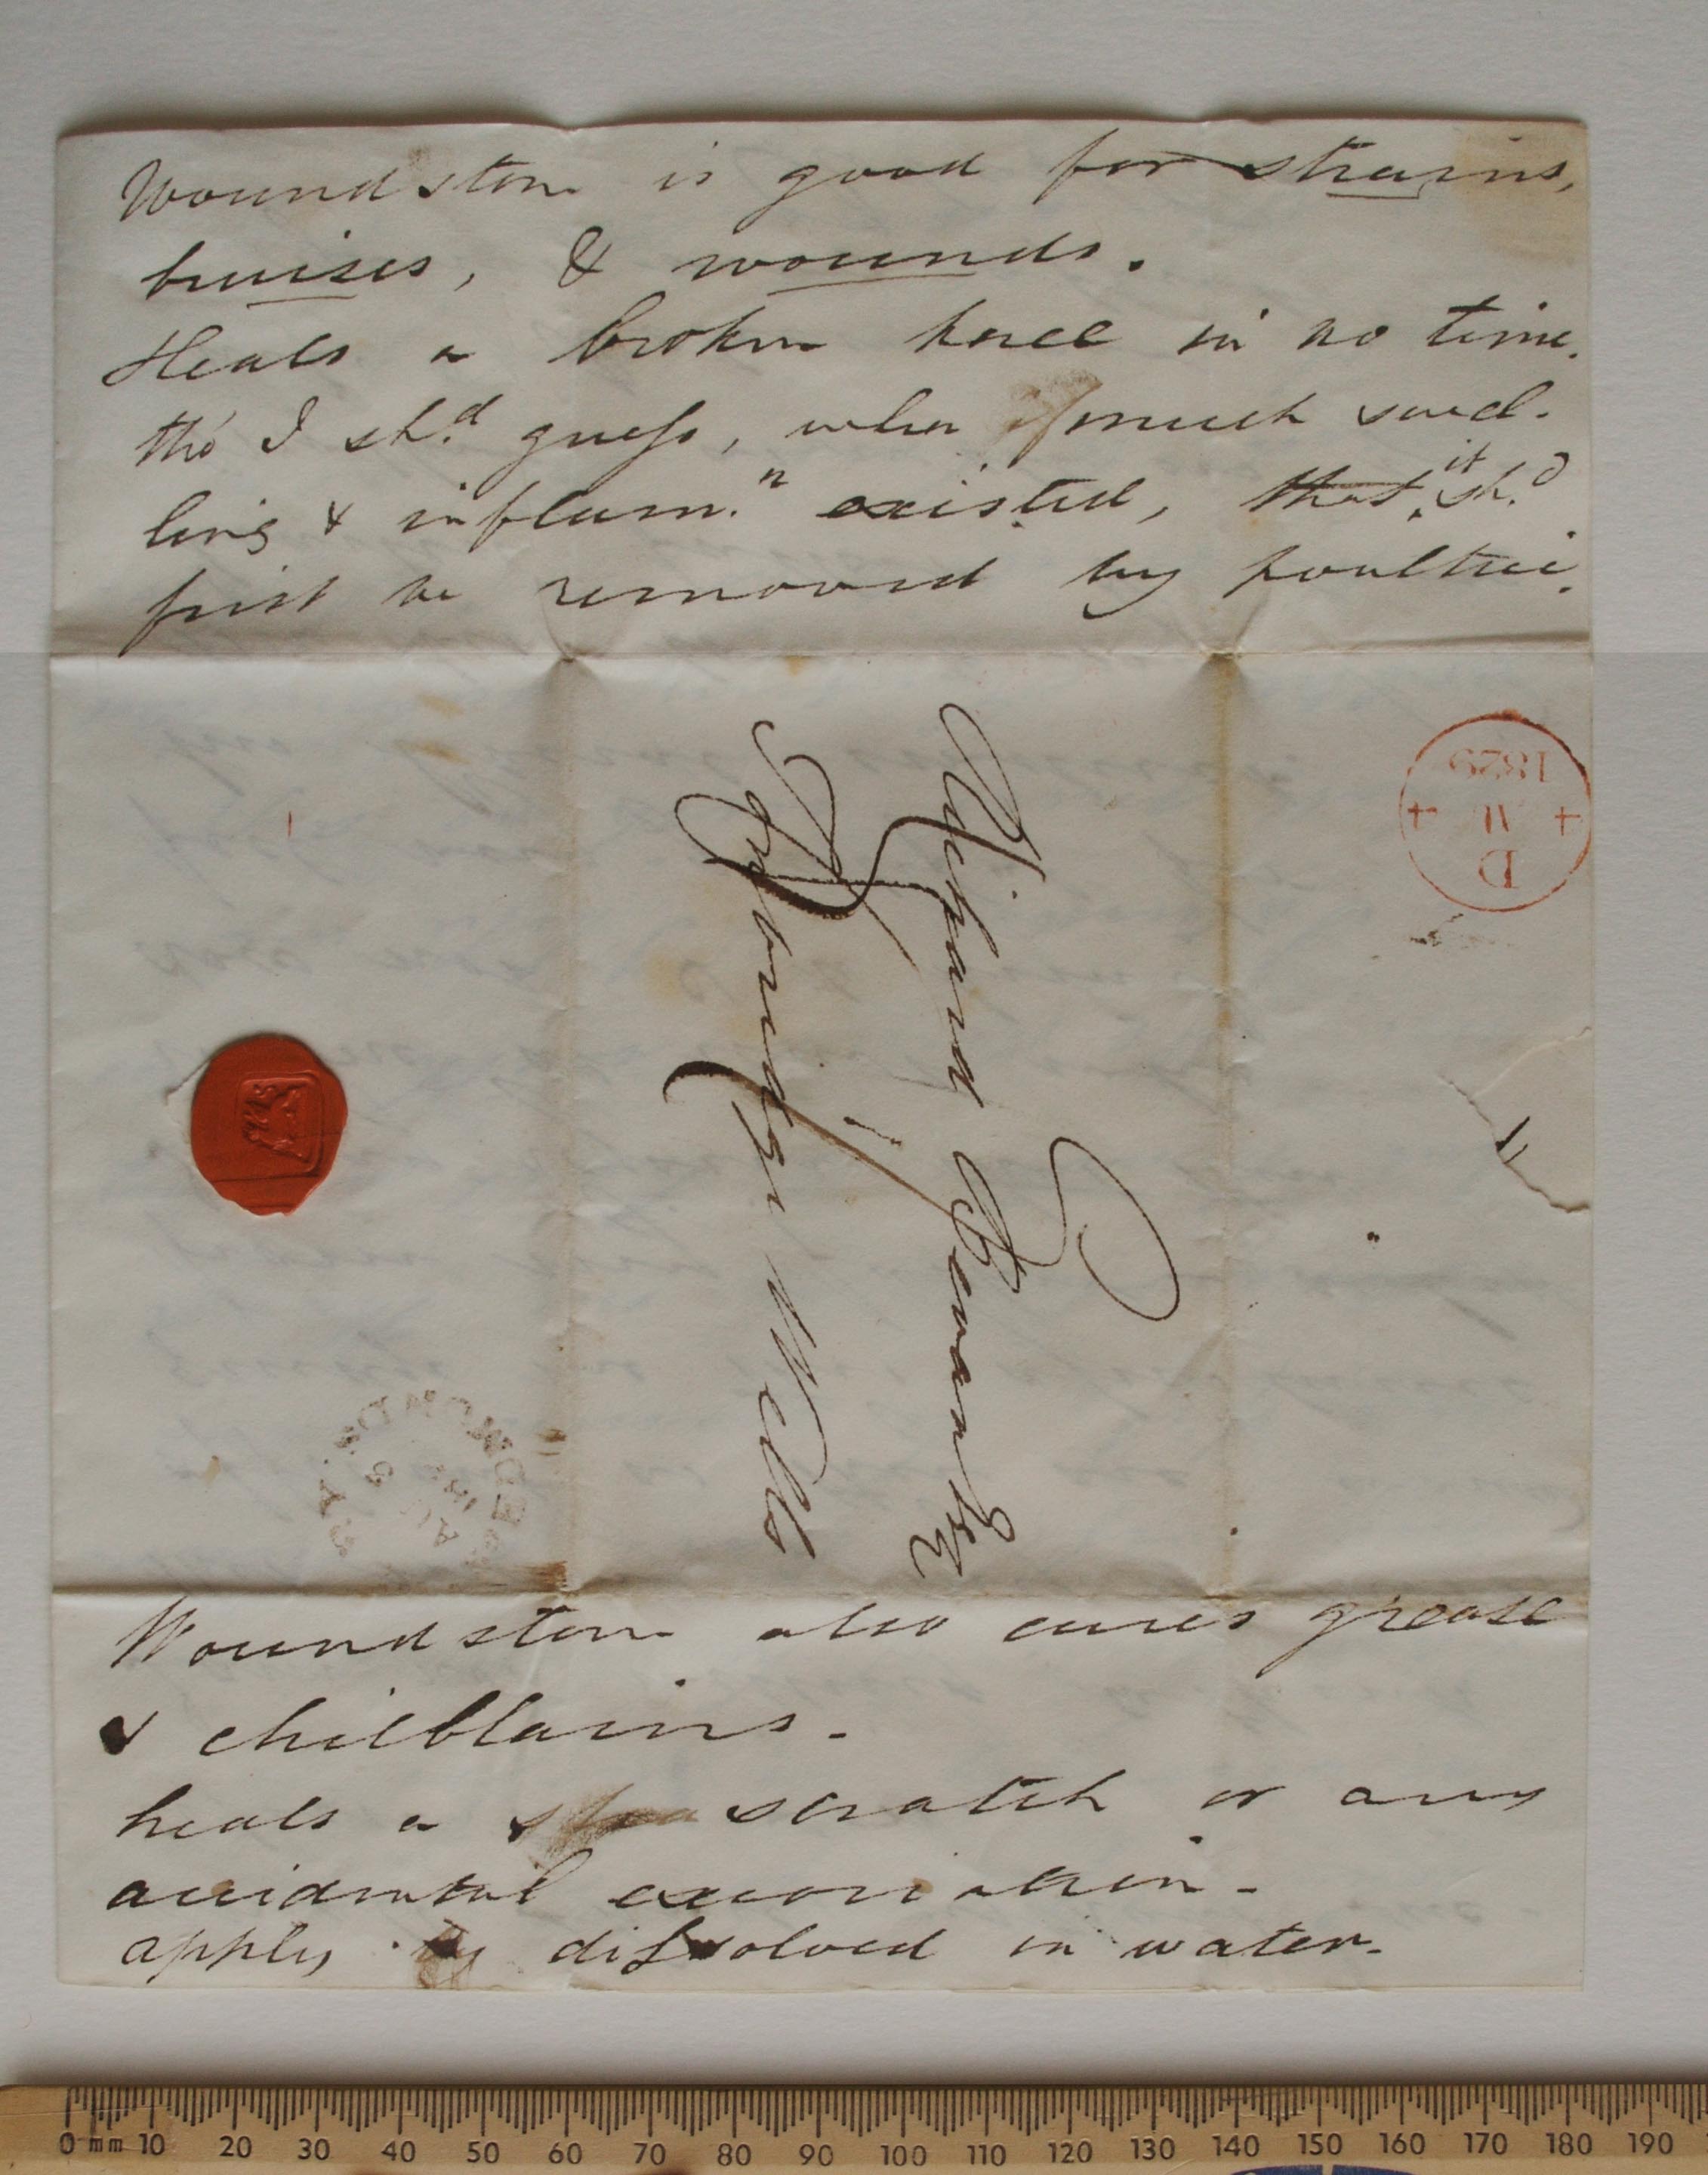 Woundstone is good for strains,
bruises, & wounds.
Heals a broken knee in no time.
tho' I sh.d guess, when if much swel-
ling & inflam.n existed, that it sh.d
first be removed by poultice.
Richard Bevan Esq
Tunbridge Wells
D
+ AU +
1829
Woundstone also cures grease
& chilblains.
heals a scratch or any
accidental excoriation.
apply by dissolved in water.
0 mm 10 20 30 40 50 60 70 80 90 100 110 120 130 140 150 160 170 180 190